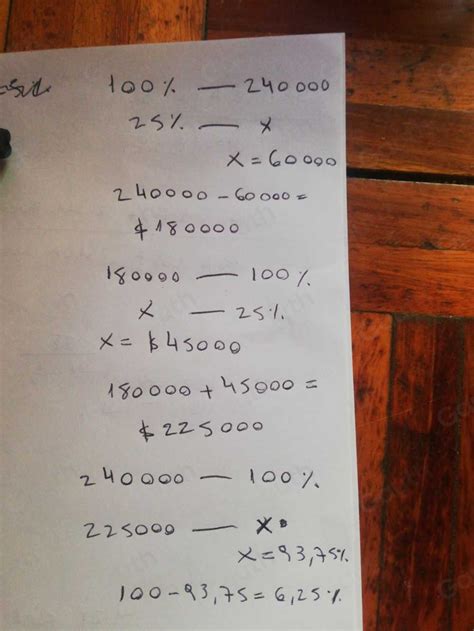 100% — 240000
25% — x
x = 60000
240000 - 60000 =
$180000
180000 — 100%
x — 25%
x = $45000
180000 + 45000 =
$225000
240000 — 100%.
225000 — x
x = 93,75%
100 - 93,75 = 6,25%